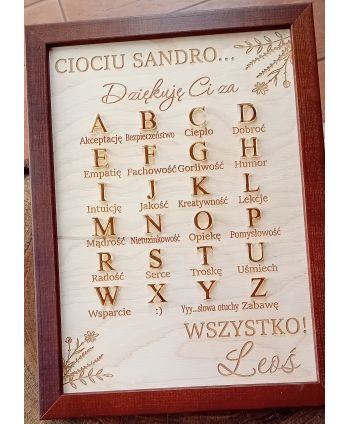 CIOCIU SANDRO...
Dziękuję Ci za
A B C D
Akceptację Bezpieczeństwo Ciepło Dobroć
E F G H
Empatię Fachowość Gorliwość Humor
I J K L
Intuicję Jakość Kreatywność Lekcje
M N O P
Mądrość Nietuzinkowość Opiekę Pomysłowość
R S T U
Radość Serce Troskę Uśmiech
W X Y Z
Wsparcie :) Yyy...słowa otuchy Zabawę
WSZYSTKO!
Leoś